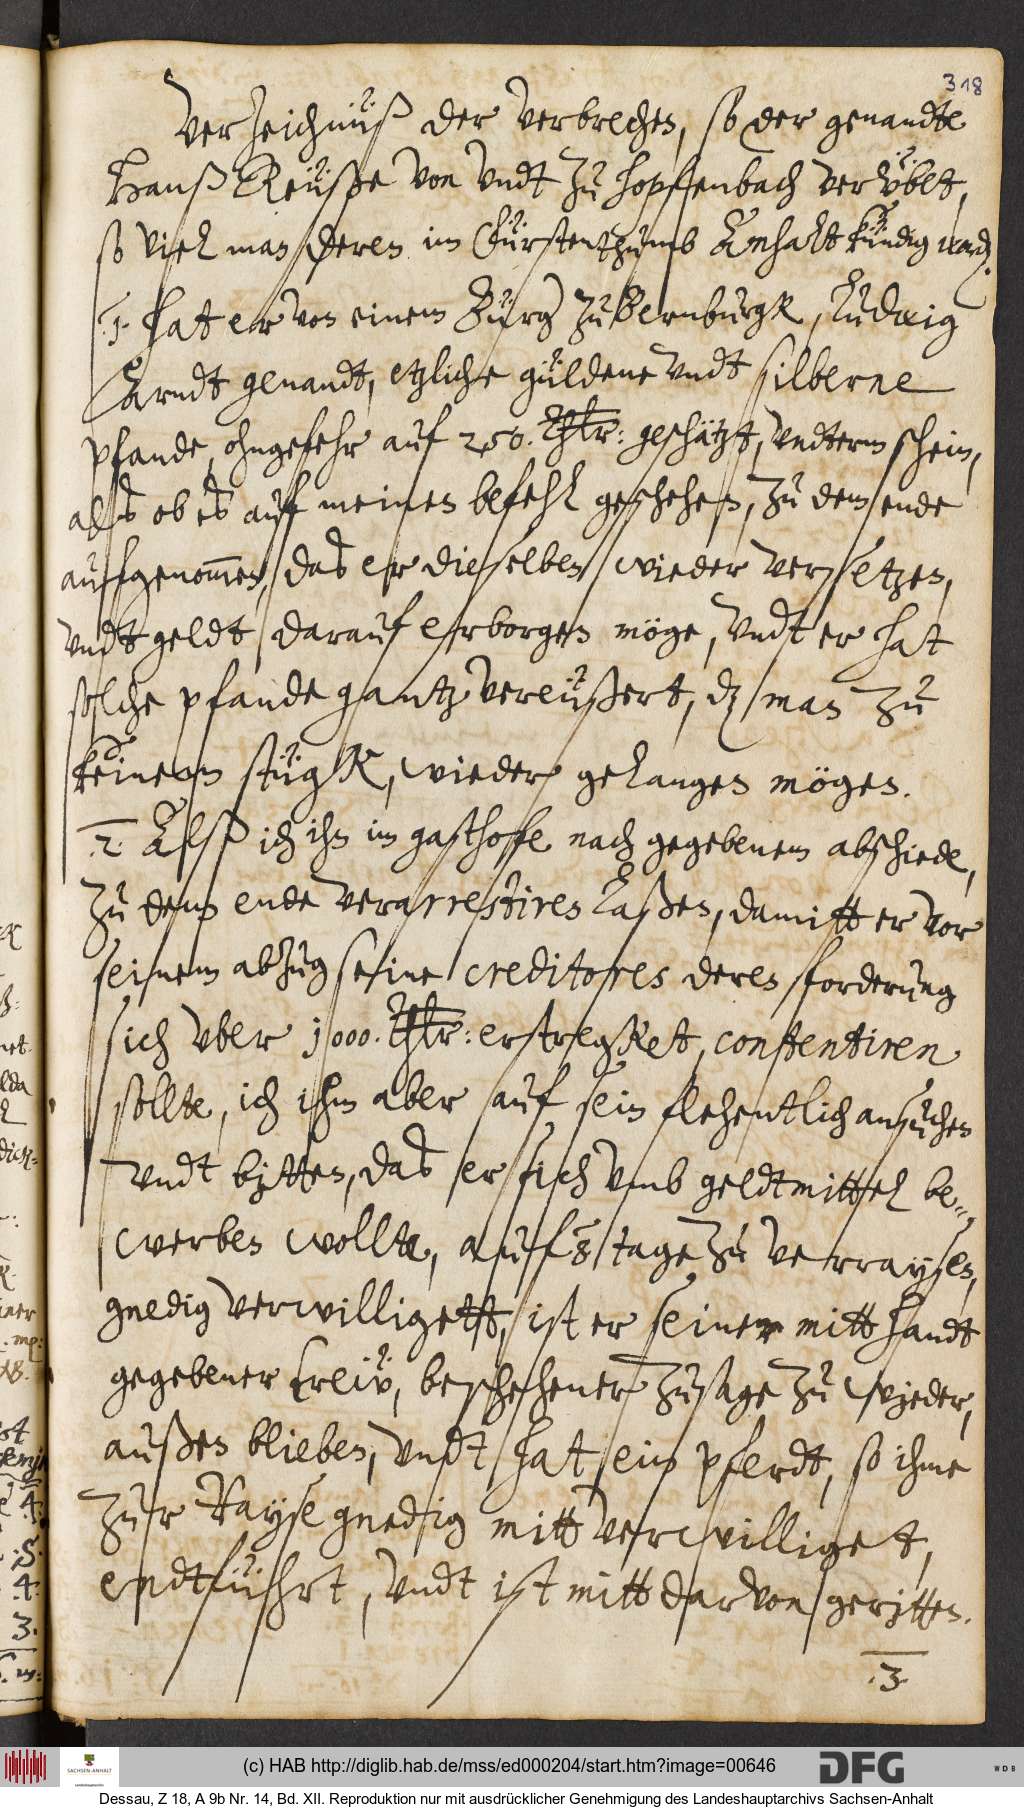 318
Verzeichnüß der verbrechen, so der genandte
Hanß Reüße von vndt zu Hopffenbach verübet,
so viel man deren im Fürstenthumb Anhalt kündig word.
.1. Hat er von einem Bürg. zu Bernburgk, Ludwig
Arndt genandt, etzliche güldene vndt silberne
pfande, ohngefehr auf 250. Thlr: geschätzt, vndterm schein,
alß ob es auff meinen befehl geschehen, zu dem ende
auffgenom̅en, das er dieselben wieder versetzen,
vndt geldt darauf erborgen möge, vndt er hat
solche pfande gantz vereüßert, dz man zu
keinem stügk, wieder gelangen mögen.
.2. Alß ich ihn im gasthoffe nach gegebenem abschiede,
zu dem ende verarrestiren laßen, damitt er vor
seinem abzug seine creditores deren fforderung
sich vber 1000. Thlr: erstregket, contentiren
sollte, ich ihm aber auf sein flehentlich ansuchen
vndt bitten, das er sich vmb geldtmittel be-,
werben wollte, auf 8 tage zu verraysen,
gnedig verwilligett, ist er seiner mitt handt
gegebener trew, beschehener zusage zu wieder,
außen blieben, vndt hat ein pferdt, so ihme
zur Rayse gnedig mitt verwilliget,
endtführt, vndt ist mitt darvon geritten.
.3.
(c) HAB http://diglib.hab.de/mss/ed000204/start.htm?image=00646
SACHSEN-ANHALT
DFG
WDB
Dessau, Z 18, A 9b Nr. 14, Bd. XII. Reproduktion nur mit ausdrücklicher Genehmigung des Landeshauptarchivs Sachsen-Anhalt